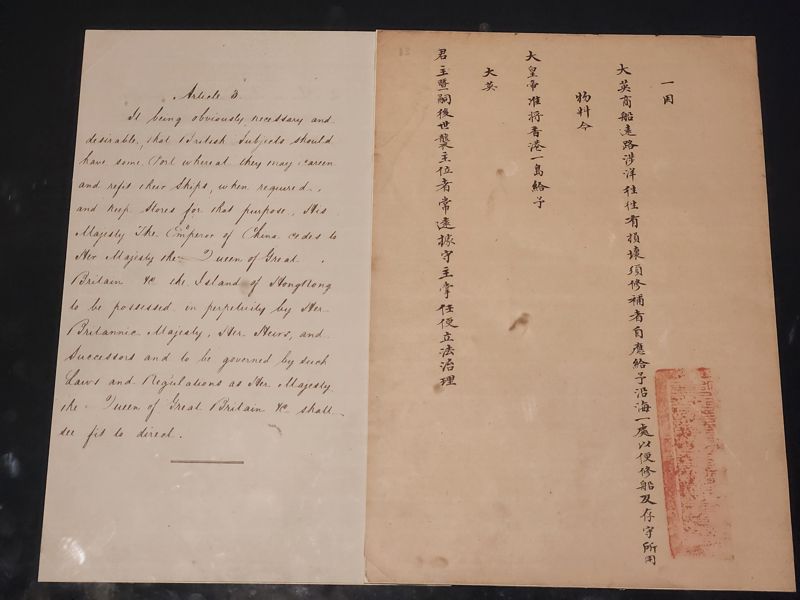 Article 3.
It being obviously necessary and
desirable, that British Subjects should
have some Port whereat they may careen
and refit their Ships, when required,
and keep Stores for that purpose, His
Majesty The Emperor of China cedes to
Her Majesty the Queen of Great
Britain &c the Island of HongKong
to be possessed in perpetuity by Her
Britannic Majesty, Her Heirs, and
Successors and to be governed by such
Laws and Regulations as Her Majesty
the Queen of Great Britain &c shall
see fit to direct.
一因
大英商船遠路涉洋往往有損壞須修補者自應給予沿海一處以便修船及存守所用
物料今
大皇帝准將香港一島給予
大英
君主暨嗣後世襲主位者常遠據守主掌任便立法治理